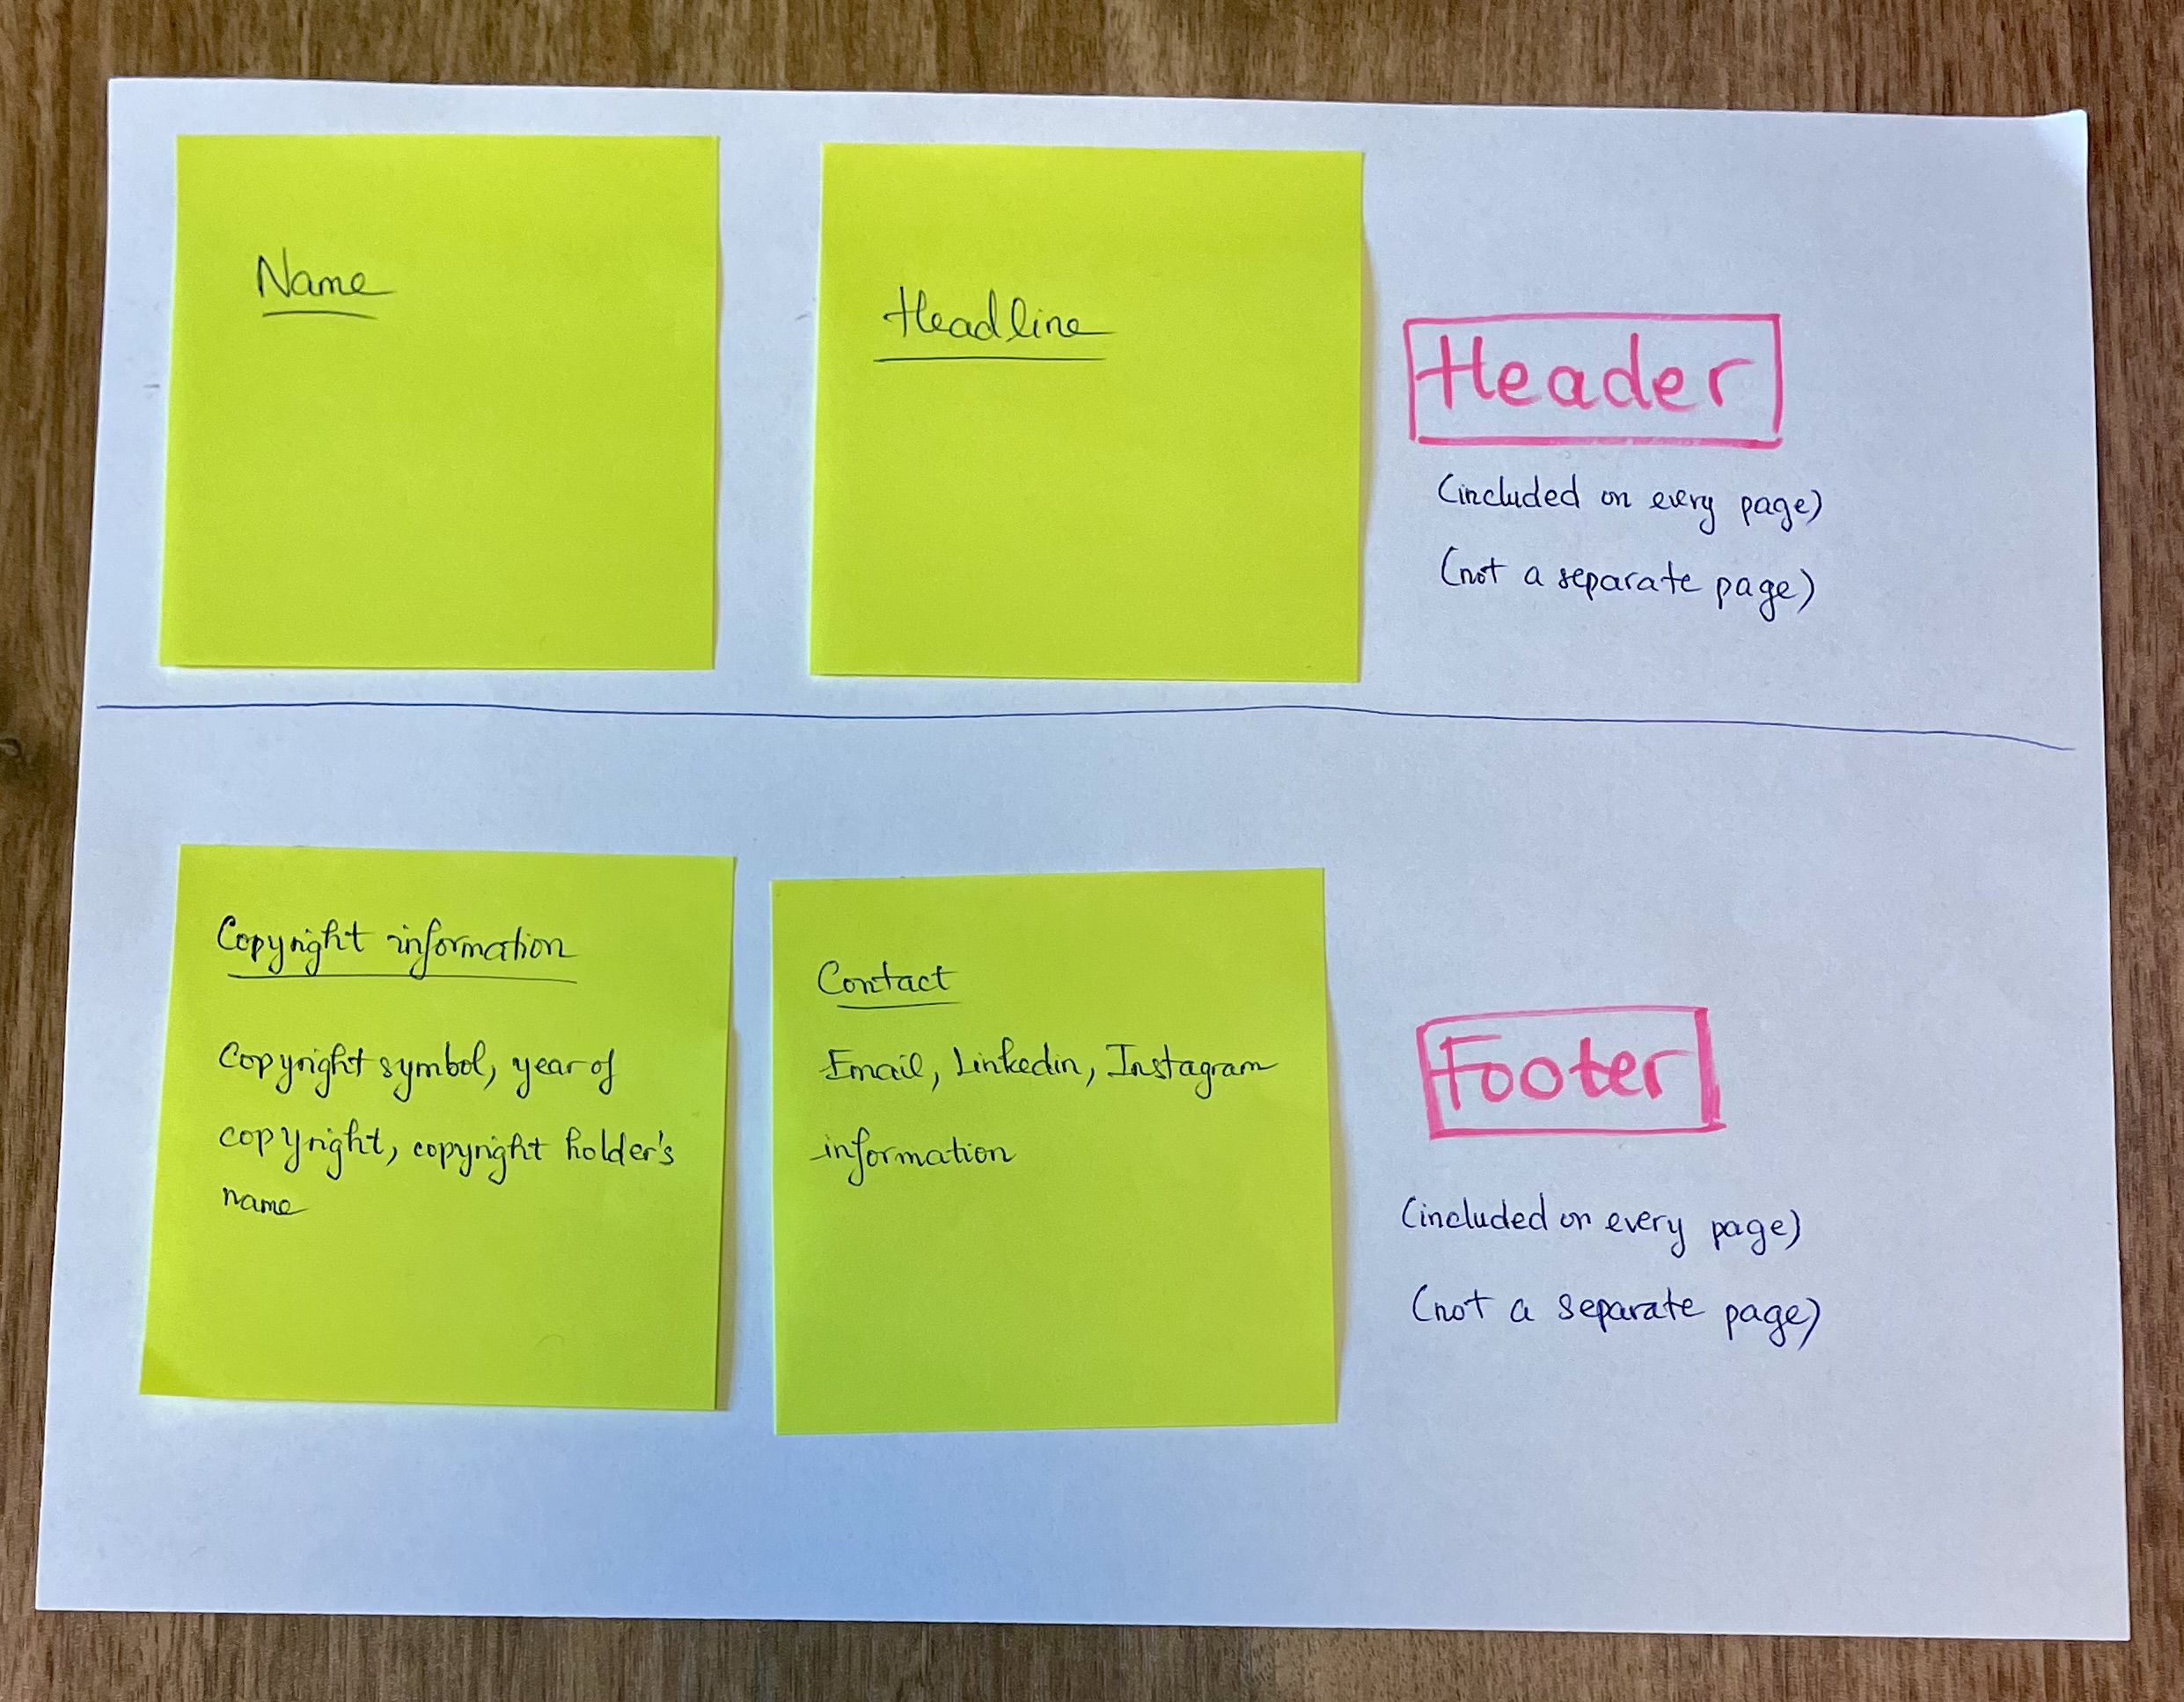 Name
Headline
Header
(included on every page)
(not a separate page)
Copyright information
Copyright symbol, year of
copyright, copyright holder's
name
Contact
Email, Linkedin, Instagram
information
Footer
(included on every page)
(not a separate page)